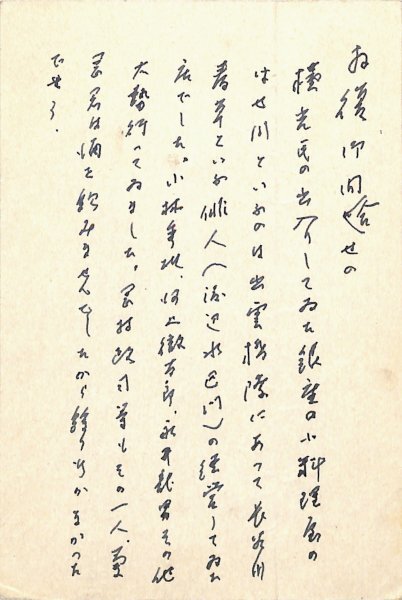 拝復 御問合せの
横光氏の出入りしてゐた銀座の小料理屋の
はせ川といふのは出雲橋際にあつて長谷川
春草といふ俳人(渡辺水巴門)の経営してゐた
店でした。小林秀雄、河上徹太郎、永井龍男その他
大勢行つてゐました。岡村政司等もその一人、
君は酒を飲みませんでしたから余り行かなかつた
でせう。